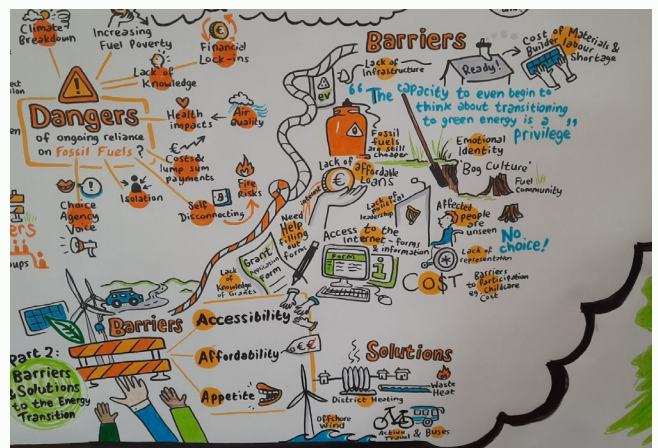 Climate
Breakdown
Increasing
Fuel Poverty
Financial
Lock-ins
Lack of
Knowledge
Dangers
of ongoing reliance
on Fossil Fuels?
Health
impacts
Air
Quality
Costs &
lump sum
payments
Fire
Risks
Self
Disconnecting
Isolation
Choice
Agency
Voice
Barriers
Lack of
Infrastructure
ev
Ready!
Cost of Materials &
Builder labour
Shortage
"The capacity to even begin to
think about transitioning
to green energy is a
privilege"
Fossil
fuels
are still
cheaper
Emotional
Identity
'Bog Culture'
Fuel
community
Lack of
affordable
Loans
interest
€
Lack of
political
leadership
Affected
people
are
unseen
No
choice!
Lack of
representation
Need
Help
filling
out
forms
Access to the
Internet - forms
& information
Form
i
COST
Barriers
to Participation
eg. Childcare
Cost
Grant
Application
Form
Lack
of
Knowledge
of Grants
Barriers
Accessibility
Affordability
€€
Appetite
Part 2:
Barriers
& Solutions
to the Energy
Transition
Solutions
District Heating
Waste
Heat
Offshore
Wind
Active
Travel & Buses